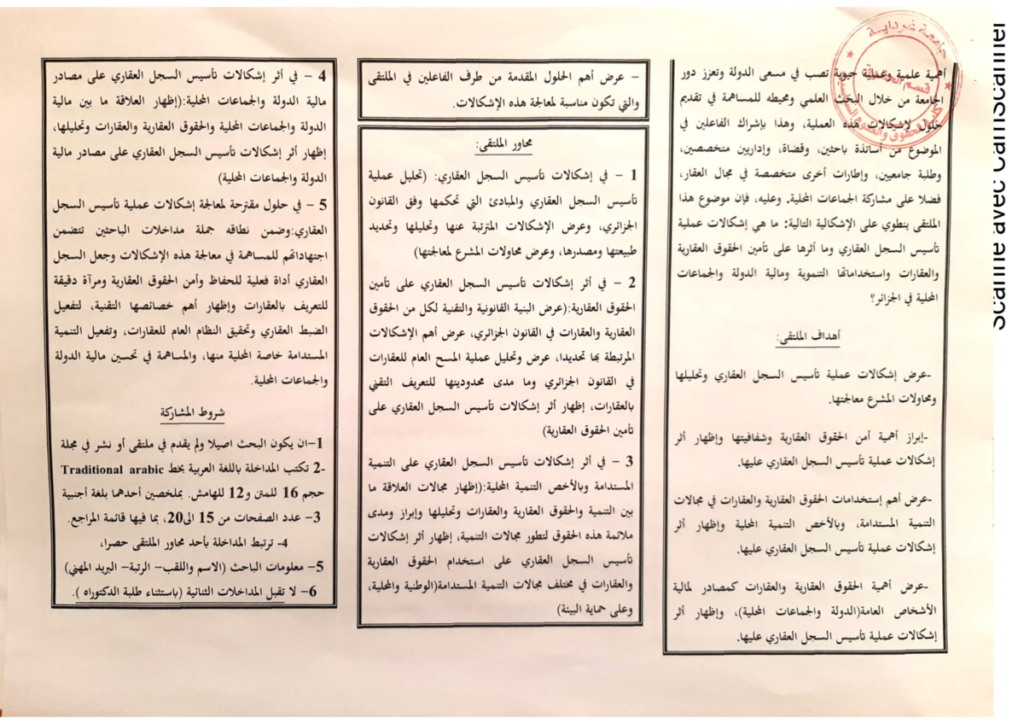 أهمية علمية وعملية حيوية تصب في مسعى الدولة وتعزز دور
الجامعة من خلال البحث العلمي ومحيطه للمساهمة في تقديم
حلول لإشكالات هذه العملية، وهذا بإشراك الفاعلين في
الموضوع من أساتذة باحثين، وقضاة، وإداريين متخصصين،
وطلبة جامعيين، وإطارات أخرى متخصصة في مجال العقار،
فضلا على مشاركة الجماعات المحلية. وعليه، فإن موضوع هذا
الملتقى ينطوي على الإشكالية التالية: ما هي إشكالات عملية
تأسيس السجل العقاري وما أثرها على تأمين الحقوق العقارية
والعقارات واستخداماتها التنموية ومالية الدولة والجماعات
المحلية في الجزائر؟
أهداف الملتقى:
-عرض إشكالات عملية تأسيس السجل العقاري وتحليلها
ومحاولات المشرع معالجتها.
-إبراز أهمية أمن الحقوق العقارية وشفافيتها وإظهار أثر
إشكالات عملية تأسيس السجل العقاري عليها.
-عرض أهم إستخدامات الحقوق العقارية والعقارات في مجالات
التنمية المستدامة، وبالأخص التنمية المحلية وإظهار أثر
إشكالات عملية تأسيس السجل العقاري عليها.
-عرض أهمية الحقوق العقارية والعقارات كمصادر لمالية
الأشخاص العامة(الدولة والجماعات المحلية)، وإظهار أثر
إشكالات عملية تأسيس السجل العقاري عليها.
– عرض أهم الحلول المقدمة من طرف الفاعلين في الملتقى
والتي تكون مناسبة لمعالجة هذه الإشكالات.
محاور الملتقى:
1 – في إشكالات تأسيس السجل العقاري: (تحليل عملية
تأسيس السجل العقاري والمبادئ التي تحكمها وفق القانون
الجزائري، وعرض الإشكالات المترتبة عنها وتحليلها وتحديد
طبيعتها ومصدرها، وعرض محاولات المشرع لمعالجتها)
2 – في أثر إشكالات تأسيس السجل العقاري على تأمين
الحقوق العقارية:(عرض البنية القانونية والتقنية لكل من الحقوق
العقارية والعقارات في القانون الجزائري، عرض أهم الإشكالات
المرتبطة بها تحديدا، عرض وتحليل عملية المسح العام للعقارات
في القانون الجزائري وما مدى محدوديتها للتعريف التقني
بالعقارات، إظهار أثر إشكالات تأسيس السجل العقاري على
تأمين الحقوق العقارية)
3 – في أثر إشكالات تأسيس السجل العقاري على التنمية
المستدامة وبالأخص التنمية المحلية:(إظهار مجالات العلاقة ما
بين التنمية والحقوق العقارية والعقارات وتحليلها وإبراز ومدى
ملائمة هذه الحقوق لتطور مجالات التنمية، إظهار أثر إشكالات
تأسيس السجل العقاري على استخدام الحقوق العقارية
والعقارات في مختلف مجالات التنمية المستدامة(الوطنية والمحلية،
وعلى حماية البيئة)
4 – في أثر إشكالات تأسيس السجل العقاري على مصادر
مالية الدولة والجماعات المحلية:(إظهار العلاقة ما بين مالية
الدولة والجماعات المحلية والحقوق العقارية والعقارات وتحليلها،
إظهار أثر إشكالات تأسيس السجل العقاري على مصادر مالية
الدولة والجماعات المحلية)
5 – في حلول مقترحة لمعالجة إشكالات عملية تأسيس السجل
العقاري:وضمن نطاقه جملة مداخلات الباحثين تتضمن
اجتهاداتهم للمساهمة في معالجة هذه الإشكالات وجعل السجل
العقاري أداة فعلية للحفاظ وأمن الحقوق العقارية ومرآة دقيقة
للتعريف بالعقارات وإظهار أهم خصائصها التقنية، لتفعيل
الضبط العقاري وتحقيق النظام العام للعقارات، وتفعيل التنمية
المستدامة خاصة المحلية منها، والمساهمة في تحسين مالية الدولة
والجماعات المحلية.
شروط المشاركة
1–ان يكون البحث اصيلا ولم يقدم في ملتقى أو نشر في مجلة
2- تكتب المداخلة باللغة العربية بخط Traditional arabic
حجم 16 للمتن و12 للهامش. بملخصين أحدهما بلغة أجنبية
3– عدد الصفحات من 15 الى20، بما فيها قائمة المراجع.
4- ترتبط المداخلة بأحد محاور الملتقى حصرا،
5– معلومات الباحث (الاسم واللقب– الرتبة– البريد المهني)
6– لا تقبل المداخلات الثنائية (باستثناء طلبة الدكتوراه ).
جامعة غرداية
Scanné avec CamScanner